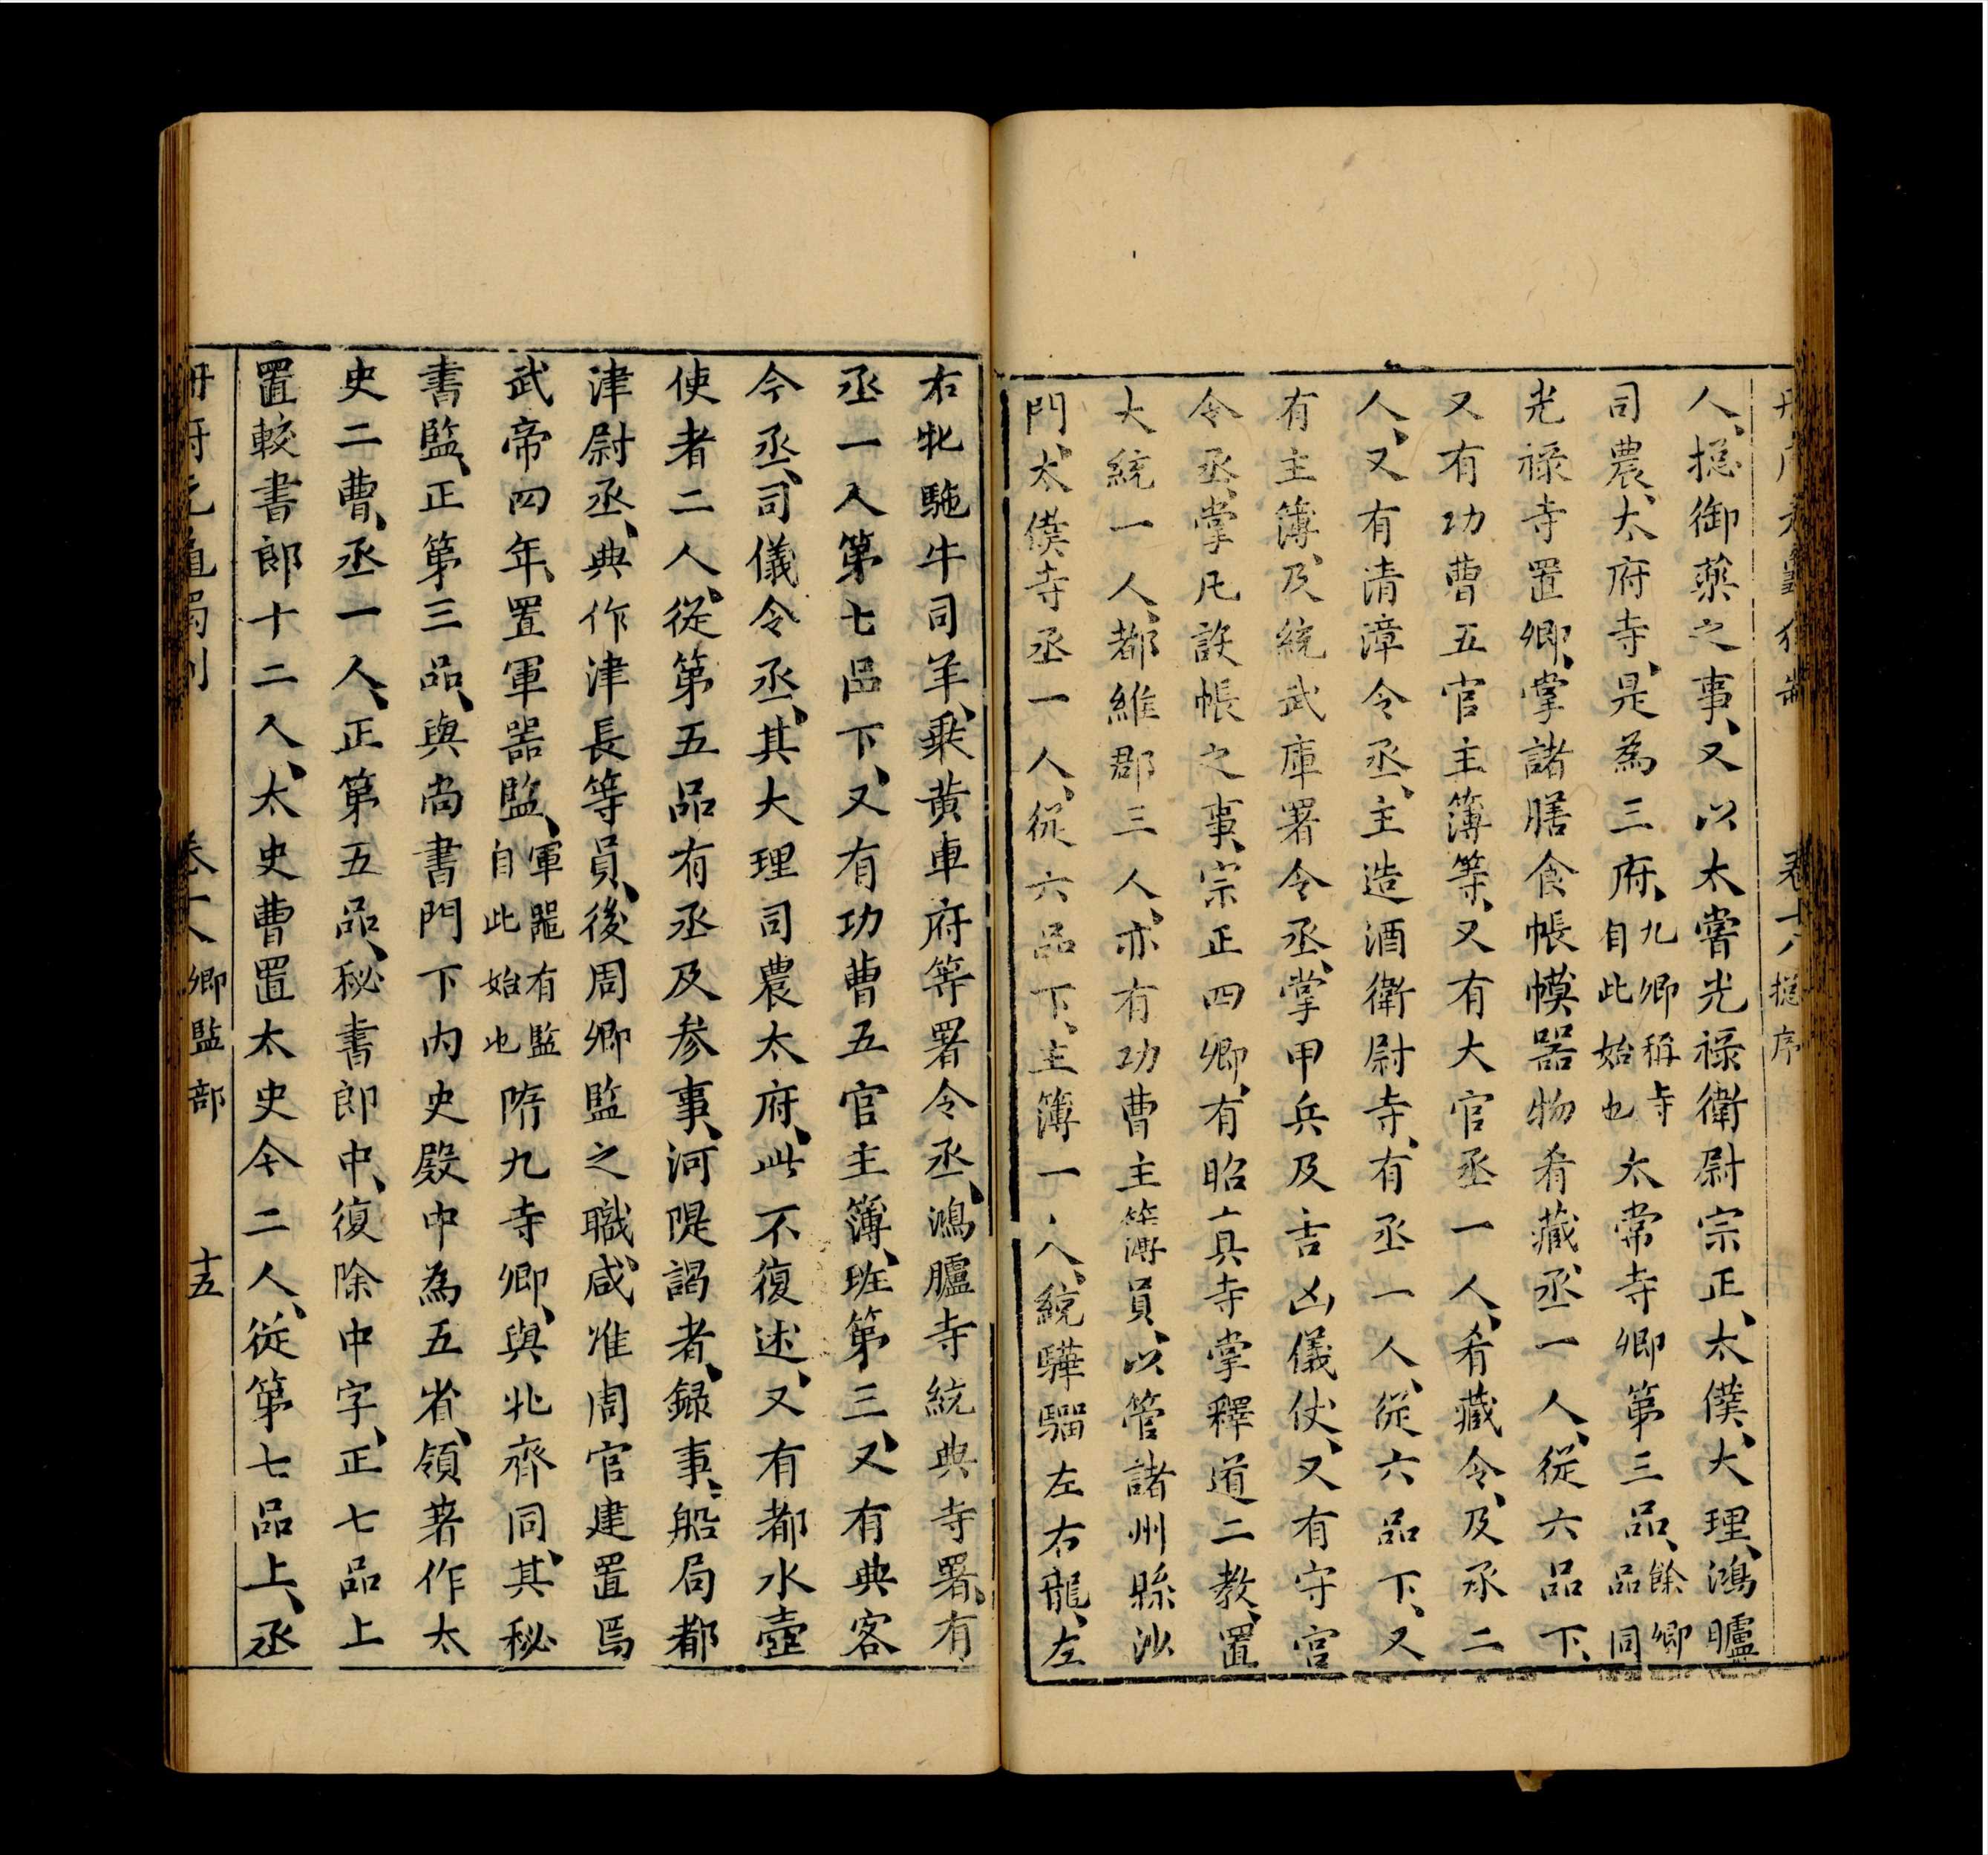 人、捴御藥之事、又以太常光祿衛尉宗正、太僕、大理、鴻臚
司農、太府寺、是為三府、九卿稱寺自此始也太常寺卿第三品、餘卿品同
光祿寺置卿、掌諸膳食帳幙器物肴藏、丞一人、從六品下、
又有功曹五官主簿等、又有大官丞一人、肴藏令、及丞二
人、又有清漳令丞、主造酒衛尉寺、有丞一人、從六品下、又
有主簿、及統武庫署令丞、掌甲兵及吉凶儀仗、又有守宮
令丞、掌凡設帳之事、宗正四卿、有昭玄寺掌釋道二教、置
大統一人、都維郡三人、亦有功曹主簿員、以管諸州縣沙
門、太僕寺丞一人、從六品下、主簿一人、統驊騮左右龍、左
右牝駞牛司羊、乗黄車府等署令丞、鴻臚寺統典寺署、有
丞一人第七品下、又有功曹五官主簿、班第三、又有典客
今丞、司儀令丞、其大理司農太府、此不復述、又有都水臺
使者二人、從第五品有丞及参事、河隄謁者、録事、船局都
津尉丞、典作津長等員、後周卿監之職、咸准周官建置焉
武帝四年、置軍噐監、軍噐有監自此始也隋九寺卿、與北齊同、其秘
書監、正第三品、與尚書門下內史殿中為五省、領著作太
史二曹、丞一人、正第五品、秘書郎中、復除中字、正七品上
置較書郎十二人、太史曹置太史令二人、從第七品上、丞
卷十八卿監部 十五